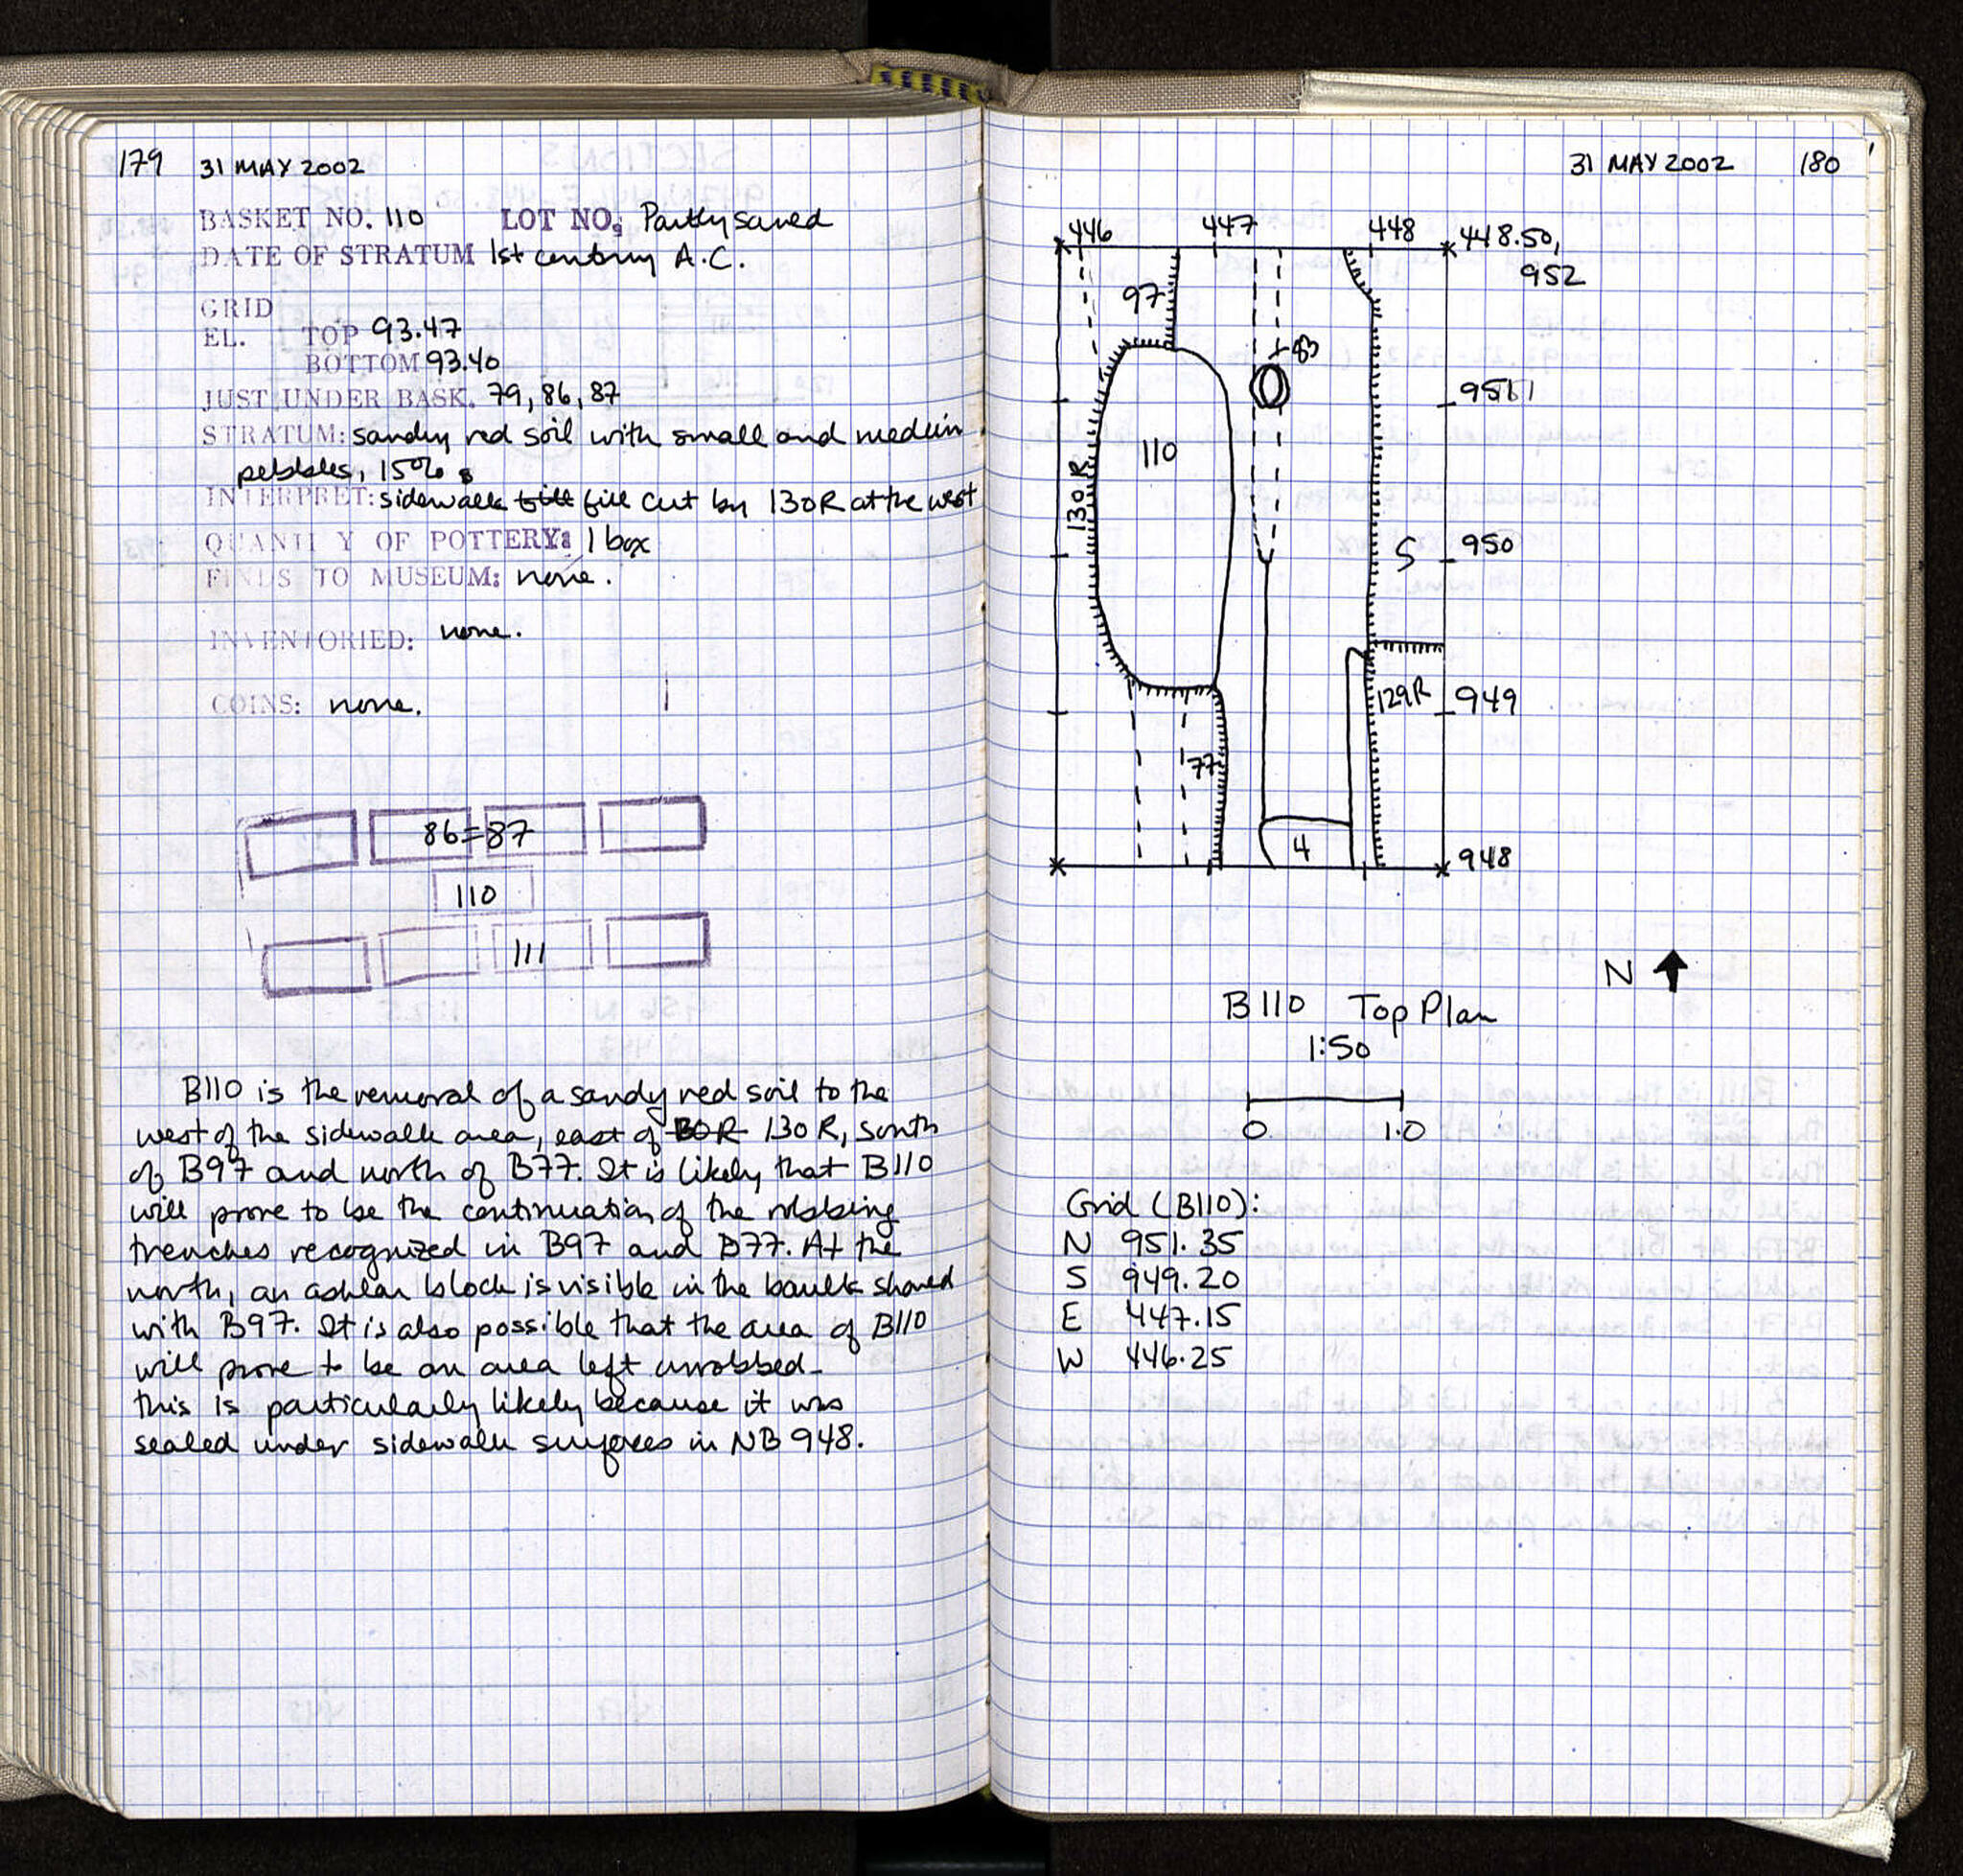 179 31 MAY 2002
BASKET NO. 110 LOT NO: Partly saved
DATE OF STRATUM 1st century A.C.
GRID
EL. TOP 93.47
BOTTOM 93.40
JUST UNDER BASK. 79, 86, 87
STRATUM: sandy red soil with small and medium
pebbles, 15%
INTERPRET: sidewalk fill cut by 130R at the west
QUANTITY OF POTTERY: 1 box
FINDS TO MUSEUM: none.
INVENTORIED: none.
COINS: none.
86=87
110
111
B110 is the removal of a sandy red soil to the
west of the sidewalk area, east of 130R, south
of B97 and north of B77. It is likely that B110
will prove to be the continuation of the robbing
trenches recognized in B97 and B77. At the
north, an ashlar block is visible in the baulk shared
with B97. It is also possible that the area of B110
will prove to be an area left unrobbed-
this is particularly likely because it was
sealed under sidewalk surfaces in NB 948.
31 MAY 2002 180
446 447 448 448.50,
952
97
83
951
110
130R
5 950
129R 949
77
4 948
N
B110 Top Plan
1:50
0 1.0
Grid (B110):
N 951.35
S 949.20
E 447.15
W 446.25